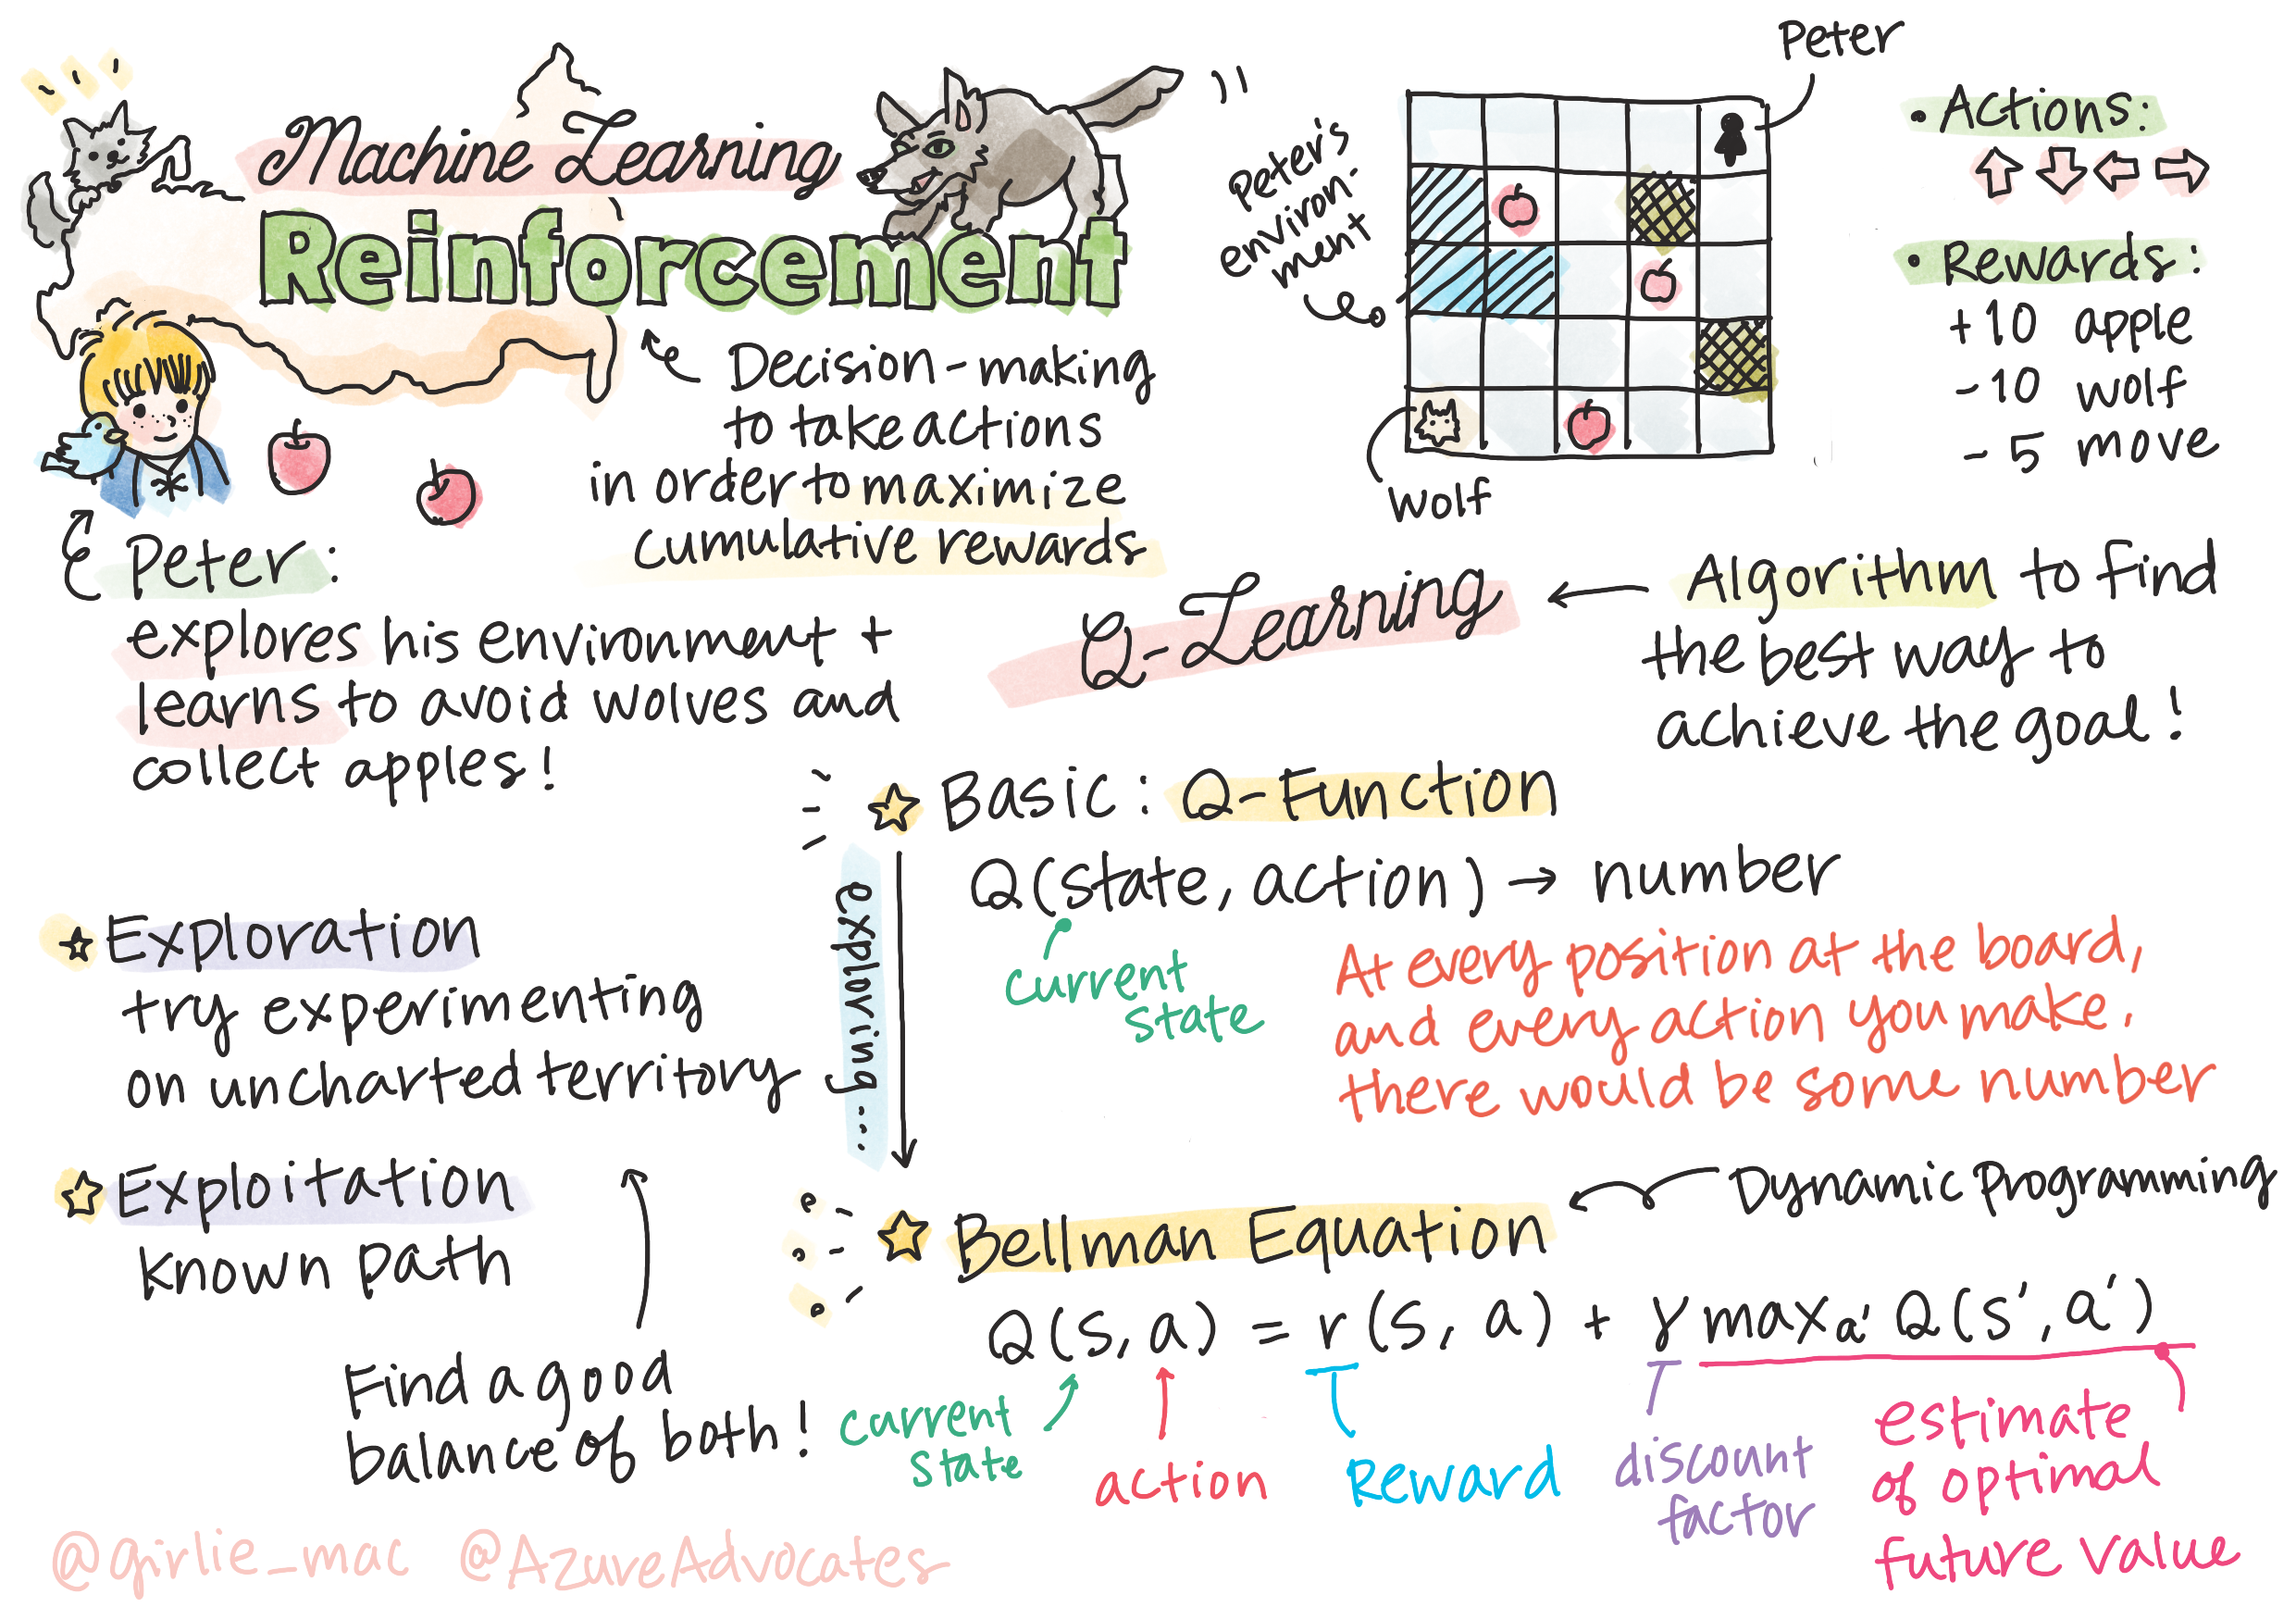 Machine Learning
Reinforcement
Decision-making
to take actions
in order to maximize
cumulative rewards
Peter:
explores his environment +
learns to avoid wolves and
collect apples!
Peter
Peter's
environ-
ment
wolf
• Actions:
• Rewards:
+10 apple
-10 wolf
- 5 move
Q-Learning
Algorithm to find
the best way to
achieve the goal!
Basic: Q-Function
Q(state, action) → number
current
state
At every position at the board,
and every action you make,
there would be some number
exploring...
Exploration
try experimenting
on uncharted territory
Exploitation
known path
Find a good
balance of both!
Bellman Equation
Dynamic Programming
Q(s, a) = r(s, a) + γ maxₐ' Q(s', a')
current
state
action
Reward
discount
factor
estimate
of optimal
future value
@girlie_mac @AzureAdvocates